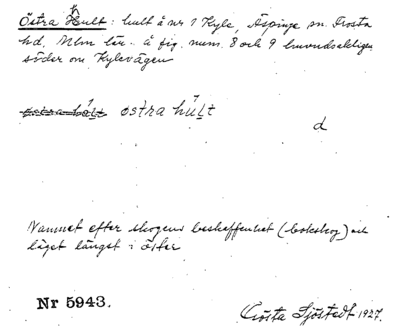 Östra Hult: hult å nr 1 Kyle, Äspinge sn. Frosta
hd, Mlm län. å fig. num. 8 och 9 huvudsakligen
söder om Kylevägen
östra hult
d
Namnet efter skogens beskaffenhet (bokskog) och
läget längst i öster
Nr 5943.
Gösta Sjöstedt 1927.